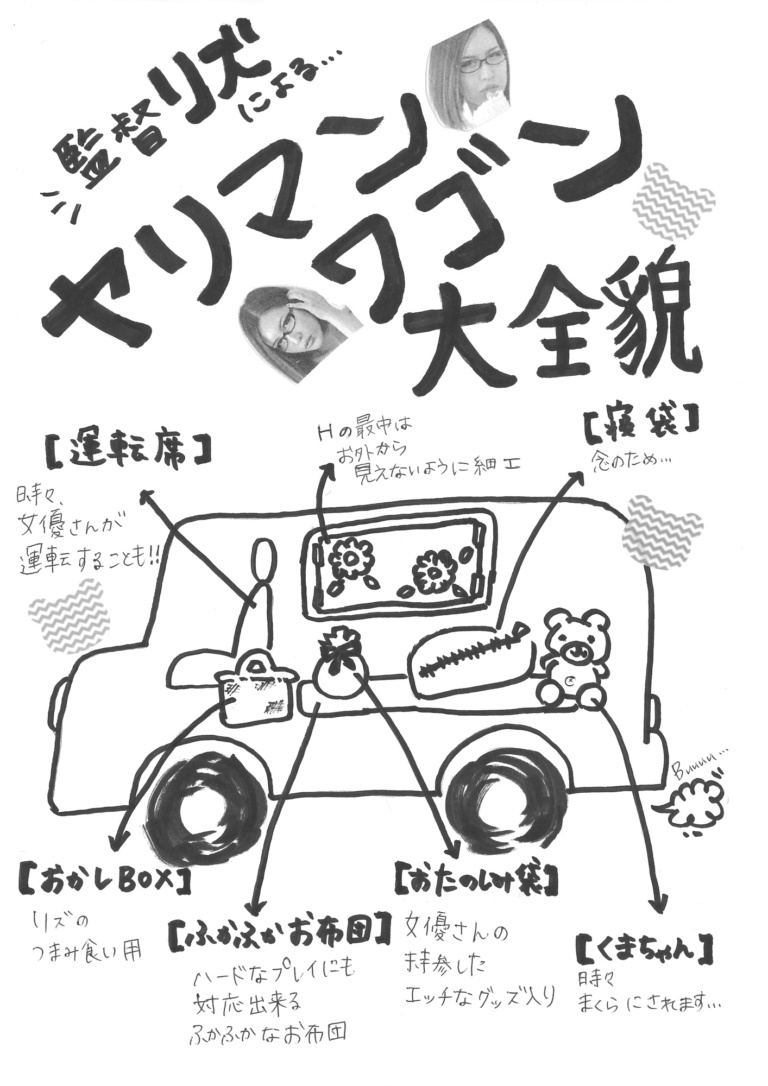 監督リズ
による…
ヤリマン
ワゴン
大全貌
【運転席】
時々、
女優さんが
運転することも!!
Hの最中は
お外から
見えないように細工
【寝袋】
念のため…
Buuuu…
【おかしBOX】
リズの
つまみ食い用
【ふかふかお布団】
ハードなプレイにも
対応出来る
ふかふかなお布団
【おたのしみ袋】
女優さんの
持参した
エッチなグッズ入り
【くまちゃん】
時々
まくらにされます…